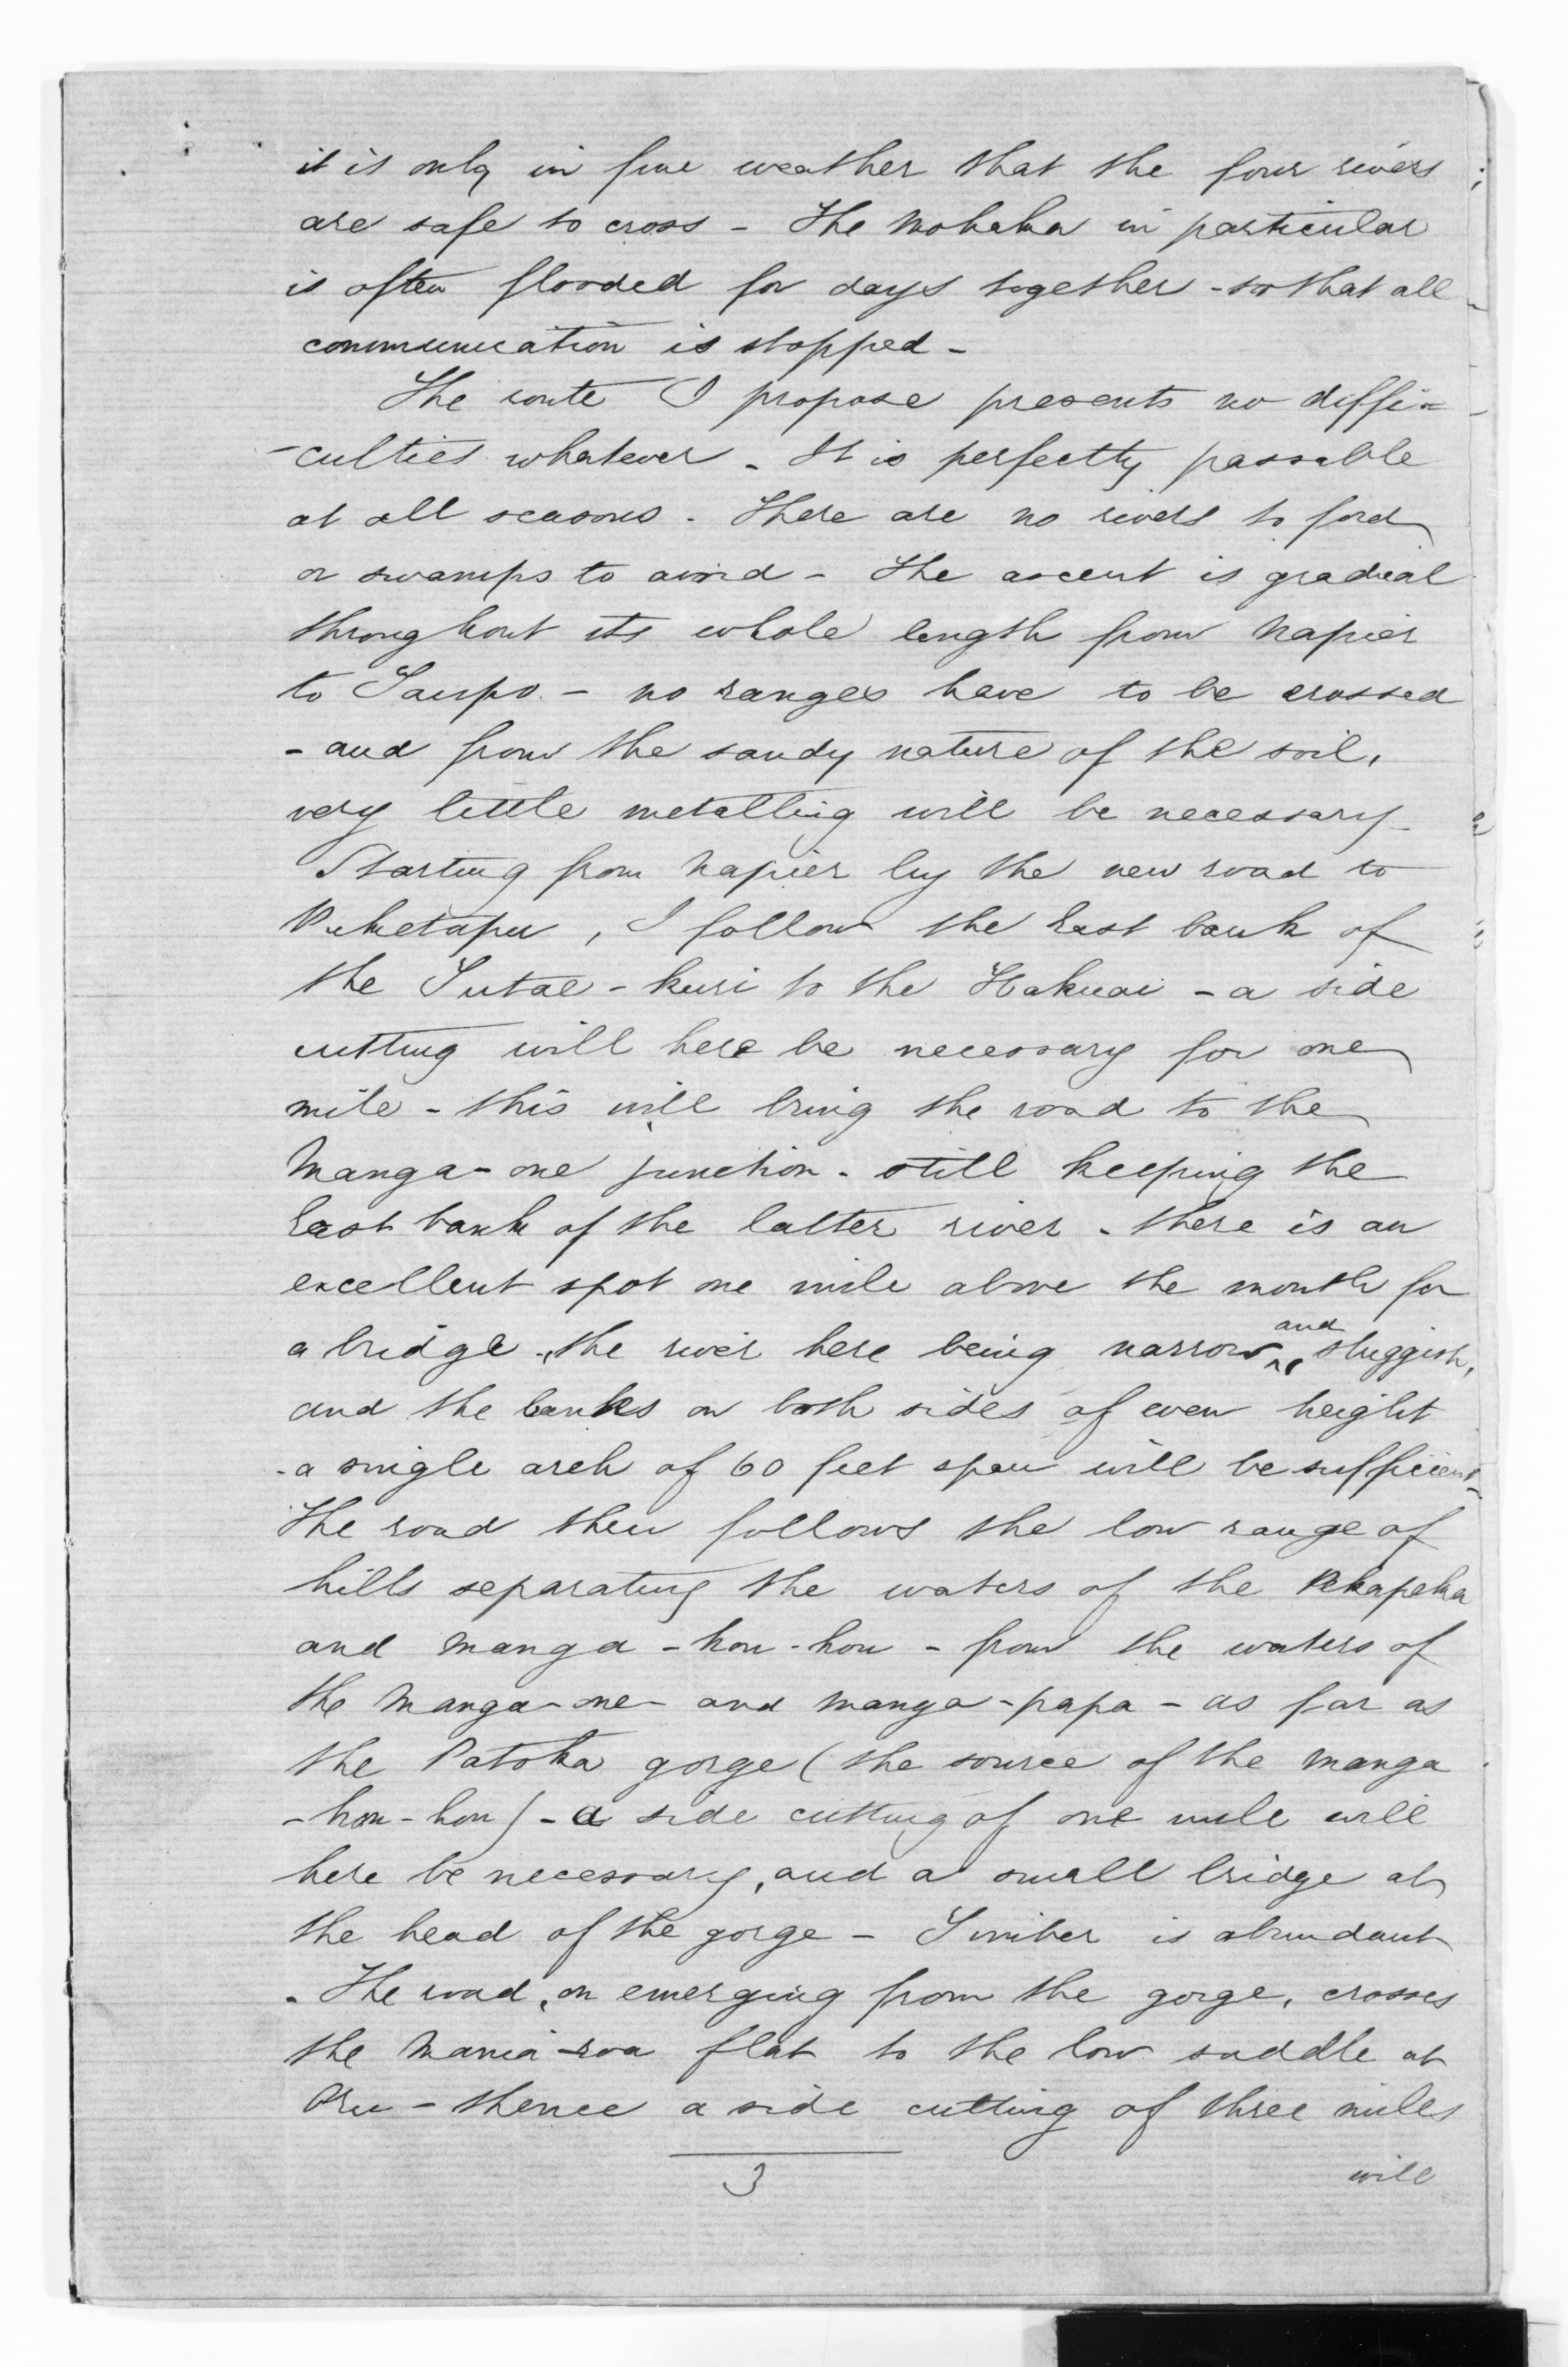 it is only in fine weather that the four rivers
are safe to cross - The Mohaka in particular
is often flooded for days together - so that all
communication is stopped -
The route I propose presents no diffi-
-culties whatever - It is perfectly passable
at all seasons - There are no rivers to ford
or swamps to avoid - The ascent is gradual
throughout its whole length from Napier
to Taupo - no ranges have to be crossed
- and from the sandy nature of the soil,
very little metalling will be necessary -
Starting from Napier by the new road to
Puketapu, I follow the East bank of
the Tutae-kuri to the Hakuai - a side
cutting will here be necessary for one
mile - this will bring the road to the
Manga-one junction - still keeping the
East bank of the latter river - there is an
excellent spot one mile above the mouth for
a bridge, the river here being narrow and sluggish,
and the banks on both sides of even height
- a single arch of 60 feet span will be sufficient -
The road then follows the low range of
hills separating the waters of the Pekapeka
and Manga-hou-hou - from the waters of
the Manga-one - and Manga-papa - as far as
the Patoka gorge (the source of the Manga
-hou-hou) - a side cutting of one mile will
here be necessary, and a small bridge at
the head of the gorge - Timber is abundant
- The road, on emerging from the gorge, crosses
the Mania-roa flat to the low saddle at
- thence a side cutting of three miles
3
will